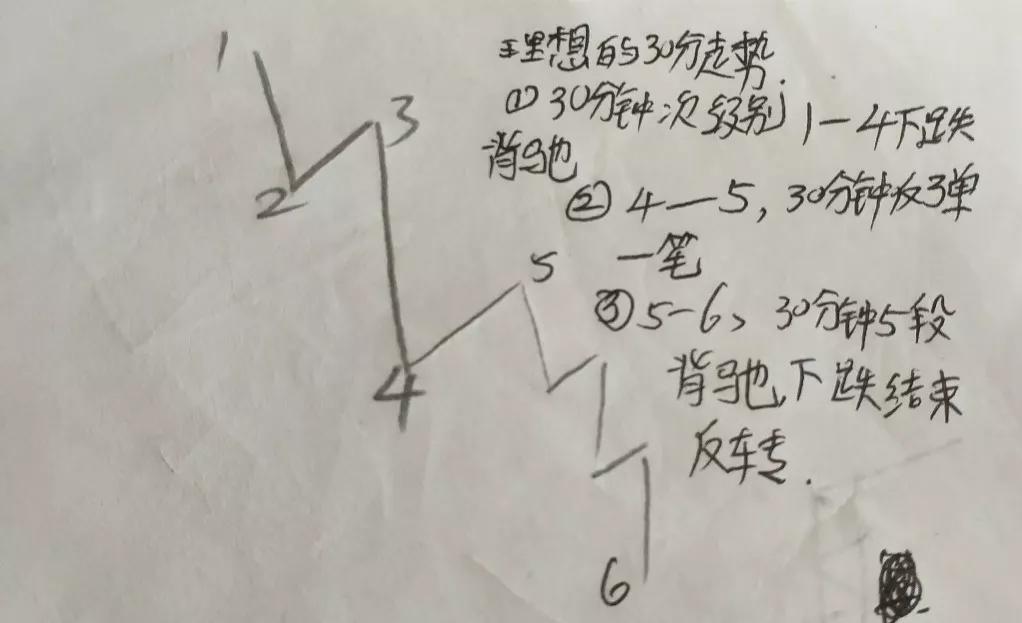 理想的30分走势
①30分钟次级别1—4下跌
背驰
②4—5,30分钟反弹
一笔
③5-6、30分钟5段
背驰,下跌结束
反转.
1
2
3
4
5
6